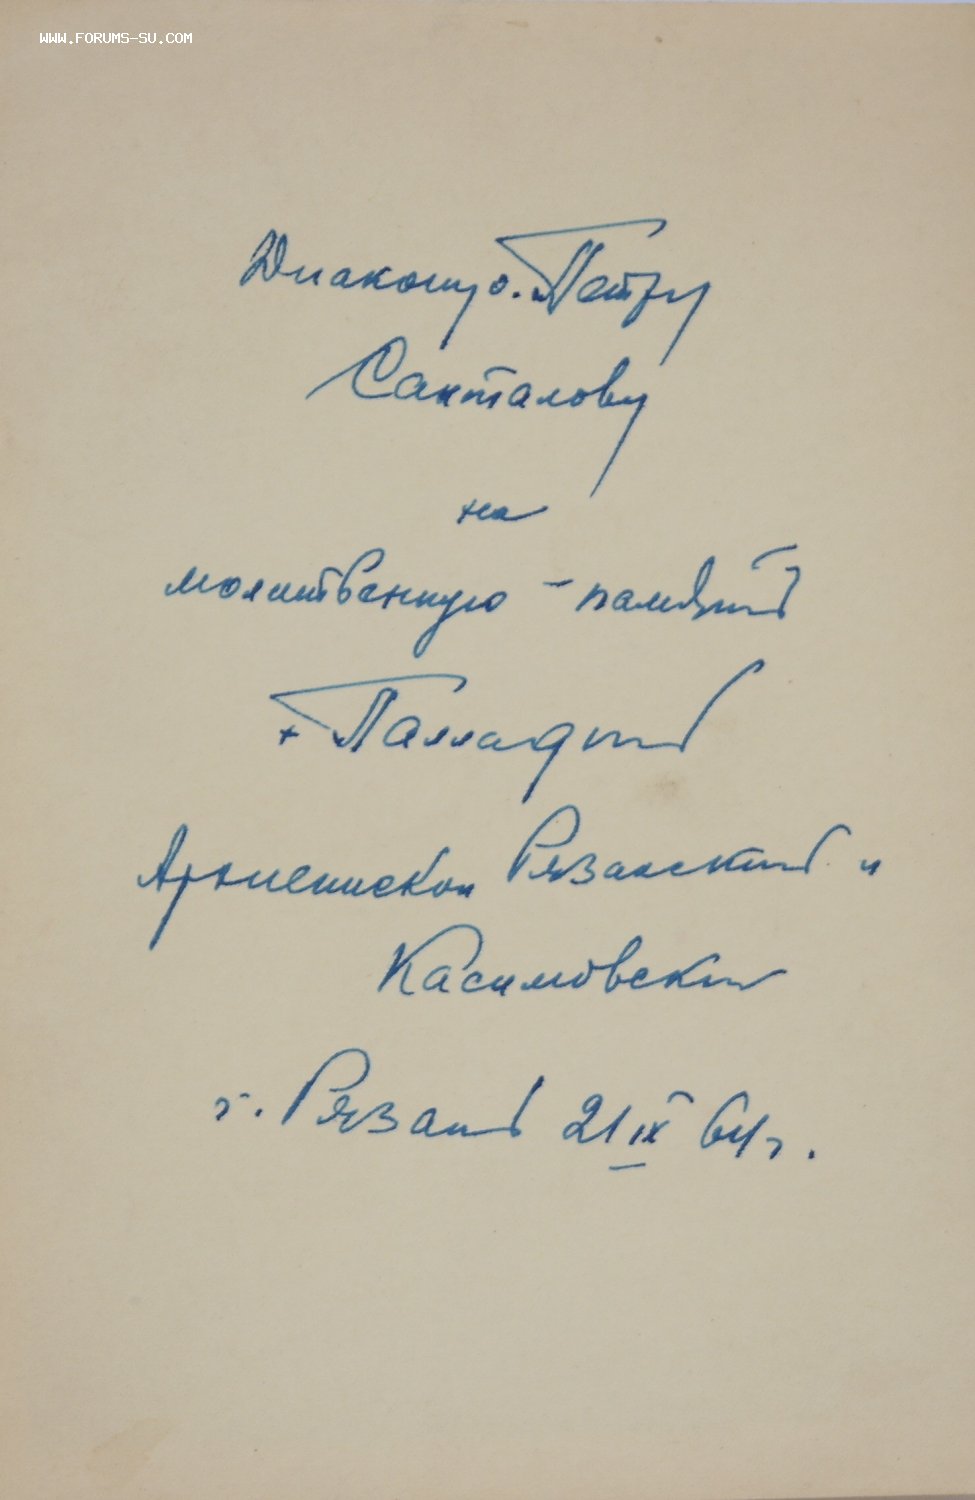 WWW.FORUMS-SU.COM
Диакону о. Петру
Санталову
на
молитвенную память
+ Палладий
Архиепископ Рязанский и
Касимовский
г. Рязань 21 IX 64 г.